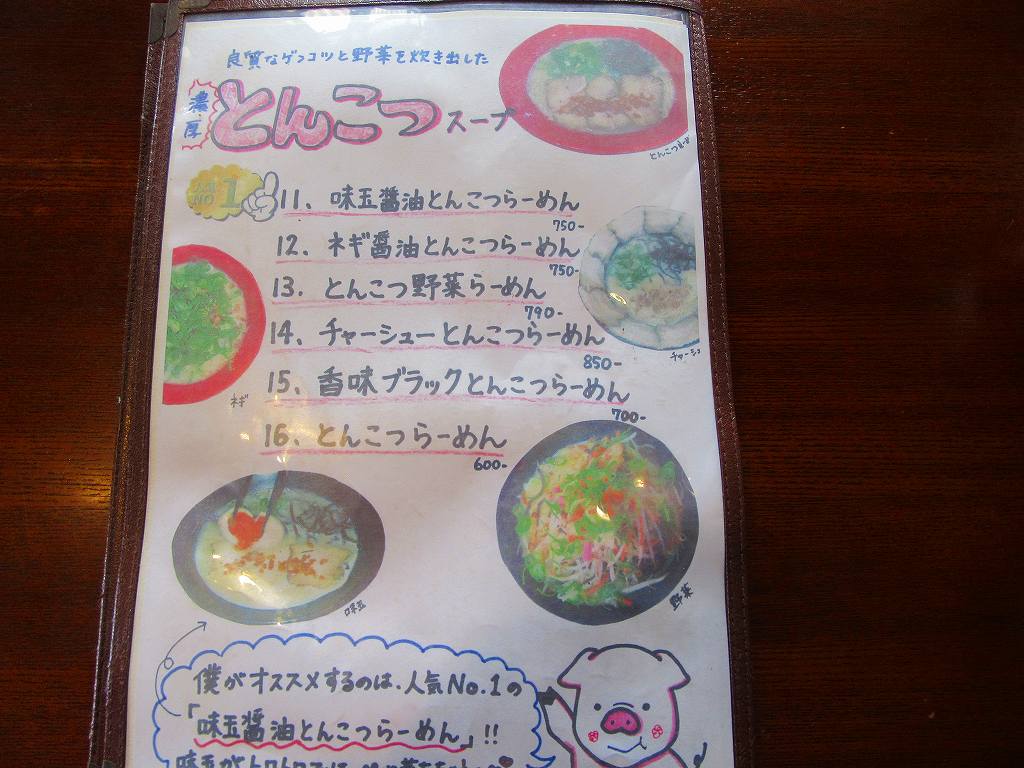 良質なゲンコツと野菜を炊き出した
濃厚 とんこつ スープ
人気 NO 1
11、味玉醤油とんこつらーめん
750-
12、ネギ醤油とんこつらーめん
750-
13、とんこつ野菜らーめん
790-
14、チャーシューとんこつらーめん
850-
チャーシュ
15、香味ブラックとんこつらーめん
700-
ネギ
16、とんこつらーめん
600-
味玉
野菜
僕がオススメするのは、人気No.1の
「味玉醤油とんこつらーめん」!!